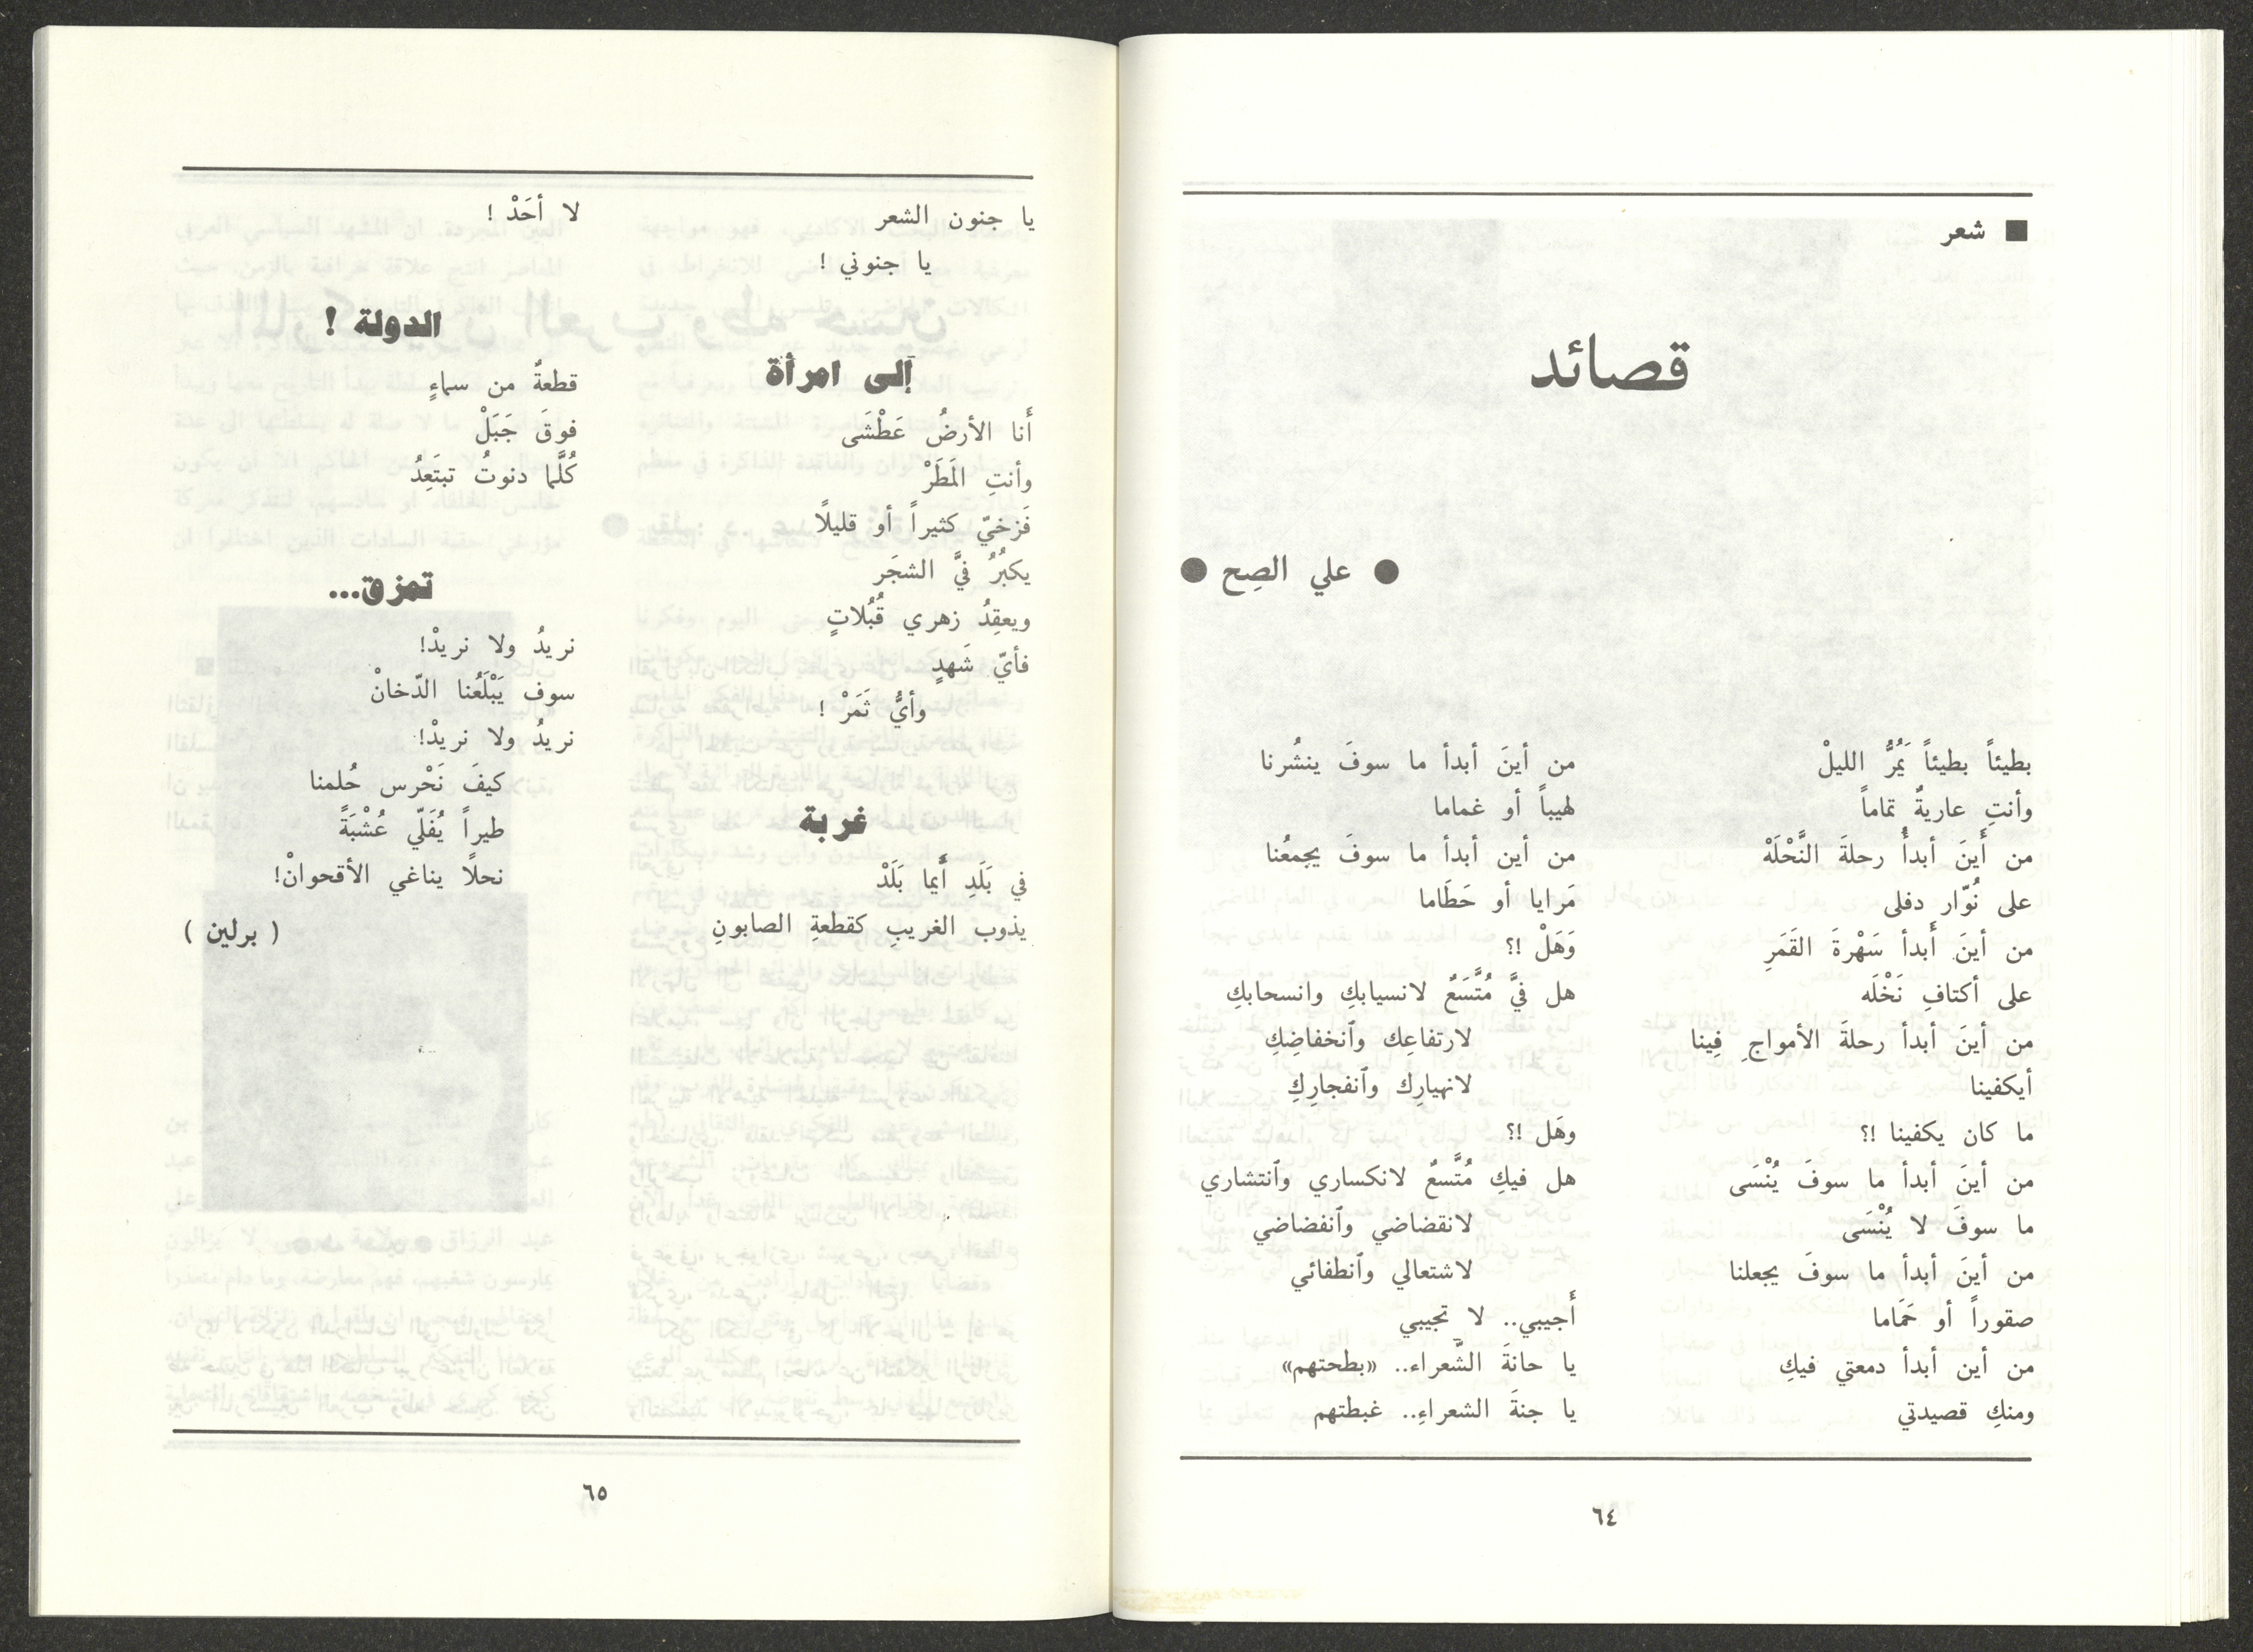 ■ شعر
قصائد
● علي الصِح ●
بطيئاً بطيئاً يَمُرُّ الليلْ
وأنتِ عاريةٌ تماماً
من أَينَ أبدأُ رحلةَ النَّحْلَهْ
على نُوّار دفلى
من أينَ أَبدأ سَهْرةَ القَمَرِ
على أكتافِ نَخْلَه
من أينَ أبدأ رحلةَ الأمواجِ فِينا
أيكفينا
ما كان يكفينا !؟
من أينَ أبدأ ما سوفَ يُنْسَى
ما سوفَ لا يُنْسَى
من أينَ أبدأ ما سوفَ يجعلنا
صقوراً أو حَمَاما
من أين أبدأ دمعتي فيكِ
ومنكِ قصيدتي
من أينَ أبدأ ما سوفَ ينشُرنا
لهيباً أو غماما
من أين أبدأ ما سوفَ يجمعُنا
مَرايا أو حَطَاما
وَهَلْ !؟
هل فيَّ مُتَّسَعٌ لانسيابكِ وانسحابكِ
لارتفاعِك وٱنخفاضِكِ
لانهيارِك وٱنفجارِكِ
وهَل !؟
هل فيكِ مُتَّسعٌ لانكساري وٱنتشاري
لانقضاضي وٱنفضاضي
لاشتعالي وٱنطفائي
أَجيبي.. لا تجيبي
يا حانةَ الشّعراء.. «بطحتهم»
يا جنةَ الشعراءِ.. غبطتهم
٦٤
يا جنون الشعر
يا جنوني !
إلى امرأة
أَنا الأرضُ عَطْشَى
وأنتِ المَطَرْ
فَزخيّ كثيراً أو قليلًا
يكبُرُ فيَّ الشجَر
ويعقِدُ زهري قُبُلاتٍ
فأيّ شَهدٍ
وأيُّ ثَمَرْ !
غربة
في بَلَدِ أَيما بَلَدْ
يذوب الغريبِ كقطعةِ الصابونِ
لا أحَدْ !
الدولة !
قطعةٌ من سماءٍ
فوقَ جَبَلْ
كُلَّما دنوتُ تبتَعِدُ
تمزق...
نريدُ ولا نريدْ!
سوف يَبْلَعُنا الدّخانْ
نريدُ ولا نريدْ!
كيفَ نَحْرس حُلمنا
طيراً يُفَلّي عُشْبَةً
نحلًا يناغي الأقحوانْ!
( برلين )
٦٥